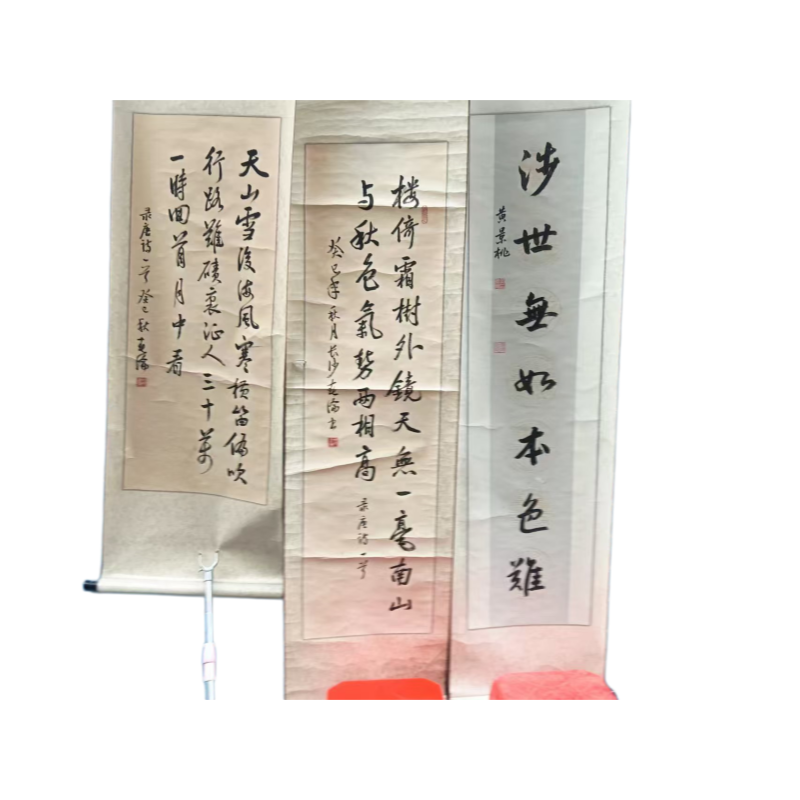 涉世無如本色難
黄景桃
楼倚霜樹外鏡天無一毫南山
与秋色氣勢两相高
录唐诗一首
癸巳年秋月长沙
天山雪後海風寒横笛偏吹
行路難磧裏征人三十萬
一時回首月中看
录唐诗一首癸巳秋